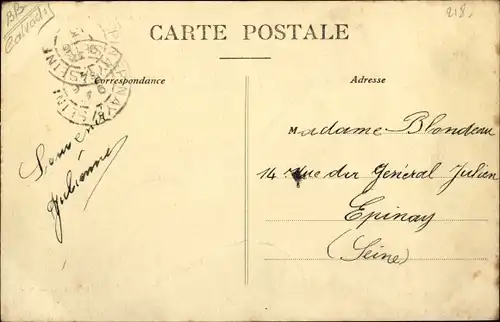 BB
Calvados
218.
CARTE POSTALE
Correspondance
Adresse
EPINAY SEINE
Madame Blondeau
14 rue du Général Julien
Epinay
(Seine)
Souvenir
Julienne